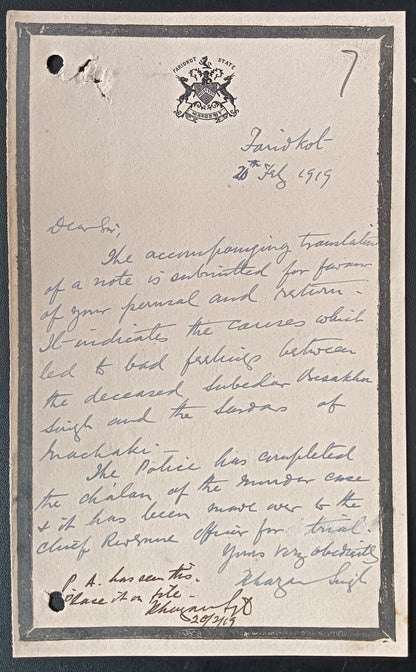 7
FARIDKOT STATE
Faridkot
20th Feb 1919
Dear Sir,
The accompanying translation
of a note is submitted for favour
of your perusal and return.
It indicates the causes which
led to bad feelings between
the deceased Subedar Basakha
Singh and the Sardars of
Machaki -
The Police has completed
the chalan, of the murder case
& it has been made over to the
Chief Revenue officer for trial.
Yours very obediently
Khazan Singh
P. A. has seen this.
Place it on file -
Khazan Sgh
20/2/19